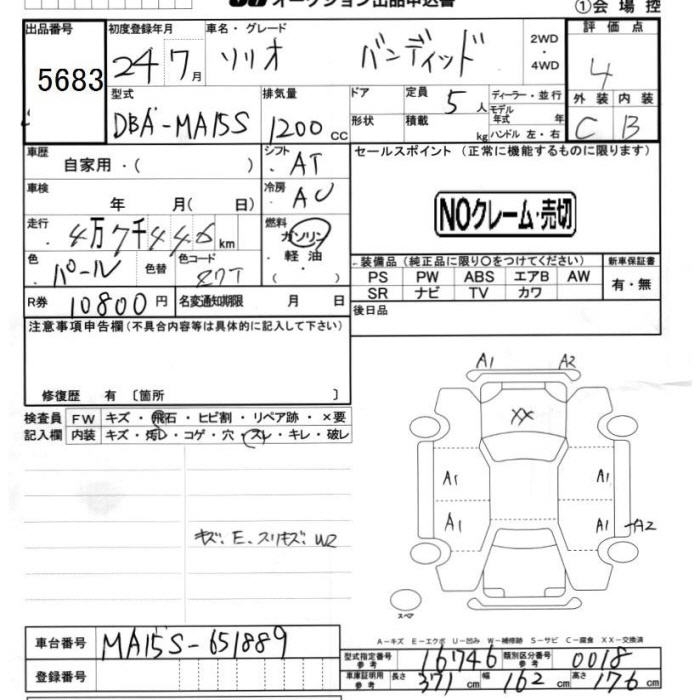 オークション出品申込書
①会場控
出品番号 初度登録年月 車名・グレード 評価点
5683 24 7月 ソリオ バンディッド 2WD・4WD 4
型式 排気量 ドア 定員 5人 ディーラー・並行 外装 内装
DBA-MA15S 1200cc 形状 積載 kg モデル年式 年式 ハンドル 左・右 C B
車歴 自家用・( ) シフト AT セールスポイント (正常に機能するものに限ります)
車検 年 月( 日) 冷房 AC NOクレーム・売切
走行 4万7千446km 燃料 ガソリン・軽油・( )
装備品 (純正品に限り○をつけてください) 新車保証書
色 パール 色替 色コード Z7T
PS PW ABS エアB AW 有・無
SR ナビ TV カワ
R券 10800円 名変通知期限 月 日 後日品
注意事項申告欄(不具合内容等は具体的に記入して下さい)
修復歴 有 〔箇所 〕
検査員 FW キズ・飛石・ヒビ割・リペア跡・×要
記入欄 内装 キズ・汚レ・コゲ・穴・スレ・キレ・破レ
A1 A2
XX
A1 A1
A1 A1 A2
キズ、E、スリキズ、W2
スペア
A-キズ E-エクボ U-凹み W-補修跡 S-サビ C-腐食 XX-交換済
車台番号 MA15S-651889
型式指定番号 参考 16746 類別区分番号 参考 0018
登録番号
車庫証明用 参考 長さ 371cm 幅 162cm 高さ 176cm